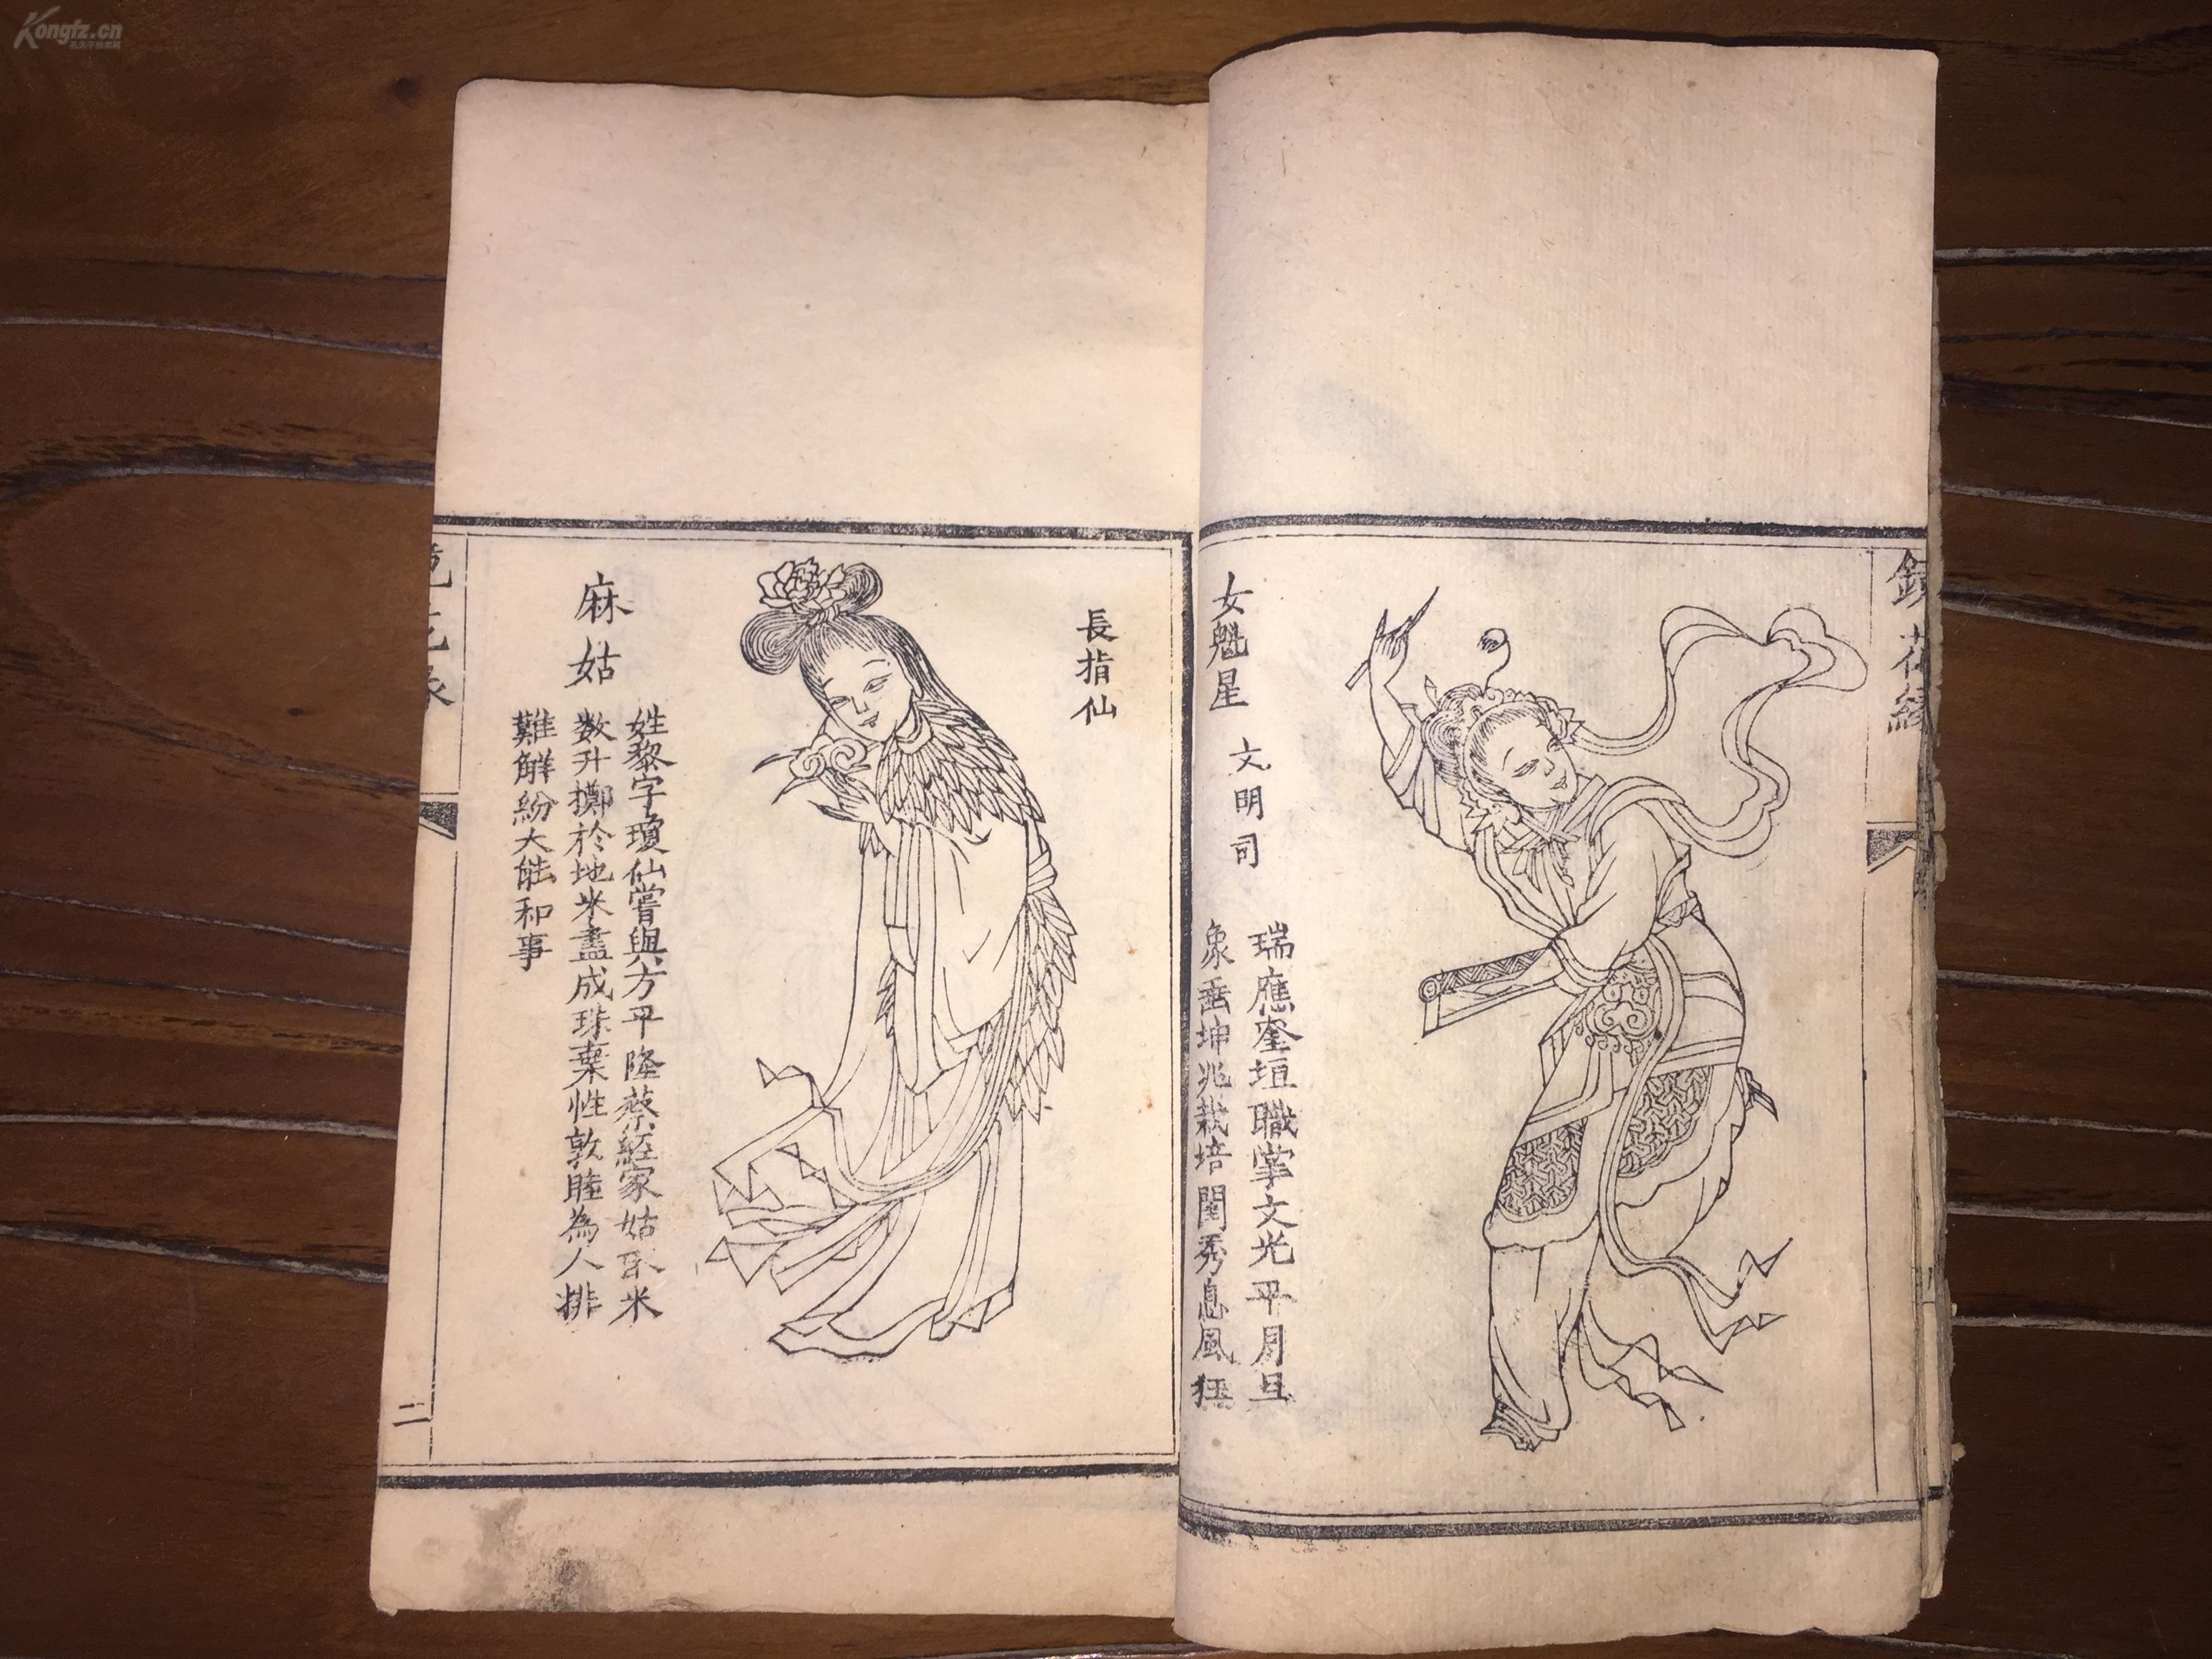 Kongfz.cn
鏡花緣
女魁星
文明司
瑞應奎垣職掌文光平月旦
象垂坤兆栽培閨秀息風狂
長指仙
麻姑
姓黎字瓊仙嘗與方平隆蔡經家姑取米
数升擲於地米盡成珠棄性敦睦為人排
難解紛大能和事
二